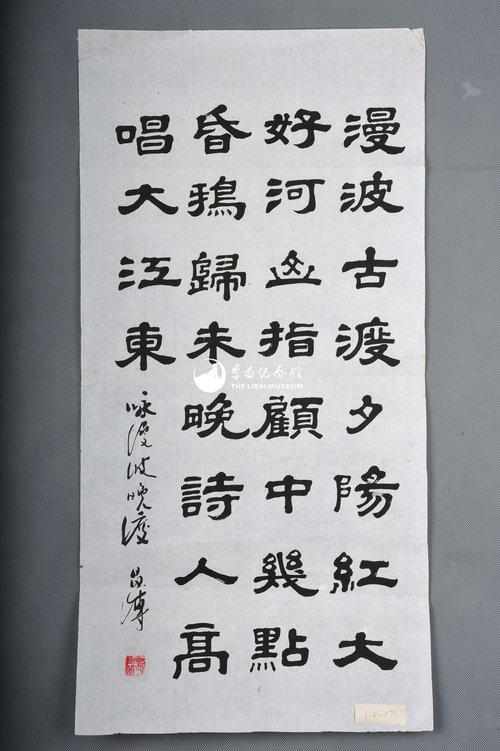 漫波古渡夕陽紅大
好河山指顧中幾點
昏鴉歸未晚詩人高
唱大江東
咏漫波晚渡
李白纪念館
THE LIBAI MUSEUM